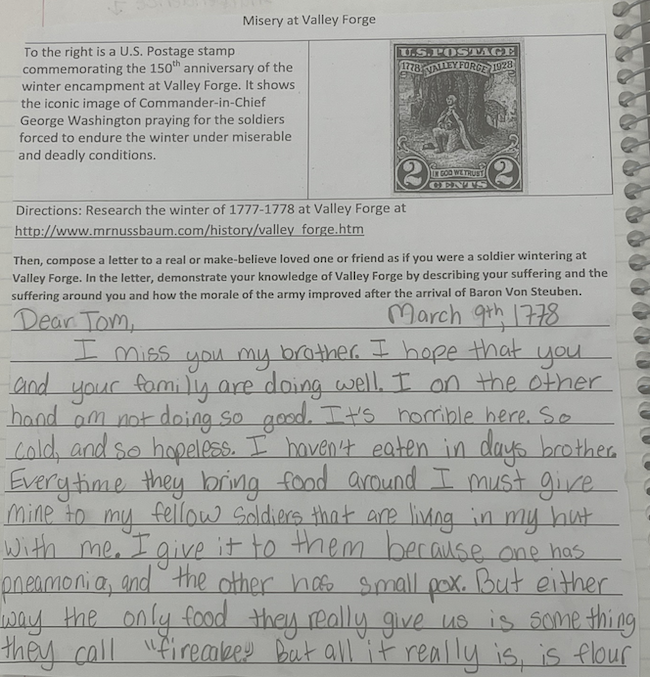 Misery at Valley Forge
To the right is a U.S. Postage stamp
commemorating the 150th anniversary of the
winter encampment at Valley Forge. It shows
the iconic image of Commander-in-Chief
George Washington praying for the soldiers
forced to endure the winter under miserable
and deadly conditions.
U.S. POSTAGE
1778 VALLEY FORGE 1928
2 IN GOD WE TRUST 2
CENTS
Directions: Research the winter of 1777-1778 at Valley Forge at
http://www.mrnussbaum.com/history/valley_forge.htm
Then, compose a letter to a real or make-believe loved one or friend as if you were a soldier wintering at
Valley Forge. In the letter, demonstrate your knowledge of Valley Forge by describing your suffering and the
suffering around you and how the morale of the army improved after the arrival of Baron Von Steuben.
Dear Tom, March 9th, 1778
I miss you my brother. I hope that you
and your family are doing well. I on the other
hand am not doing so good. It's horrible here. So
cold, and so hopeless. I haven't eaten in days brother.
Everytime they bring food around I must give
mine to my fellow soldiers that are living in my hut
with me. I give it to them because one has
pneamonia, and the other has small pox. But either
way the only food they really give us is something
they call "firecake" But all it really is, is flour